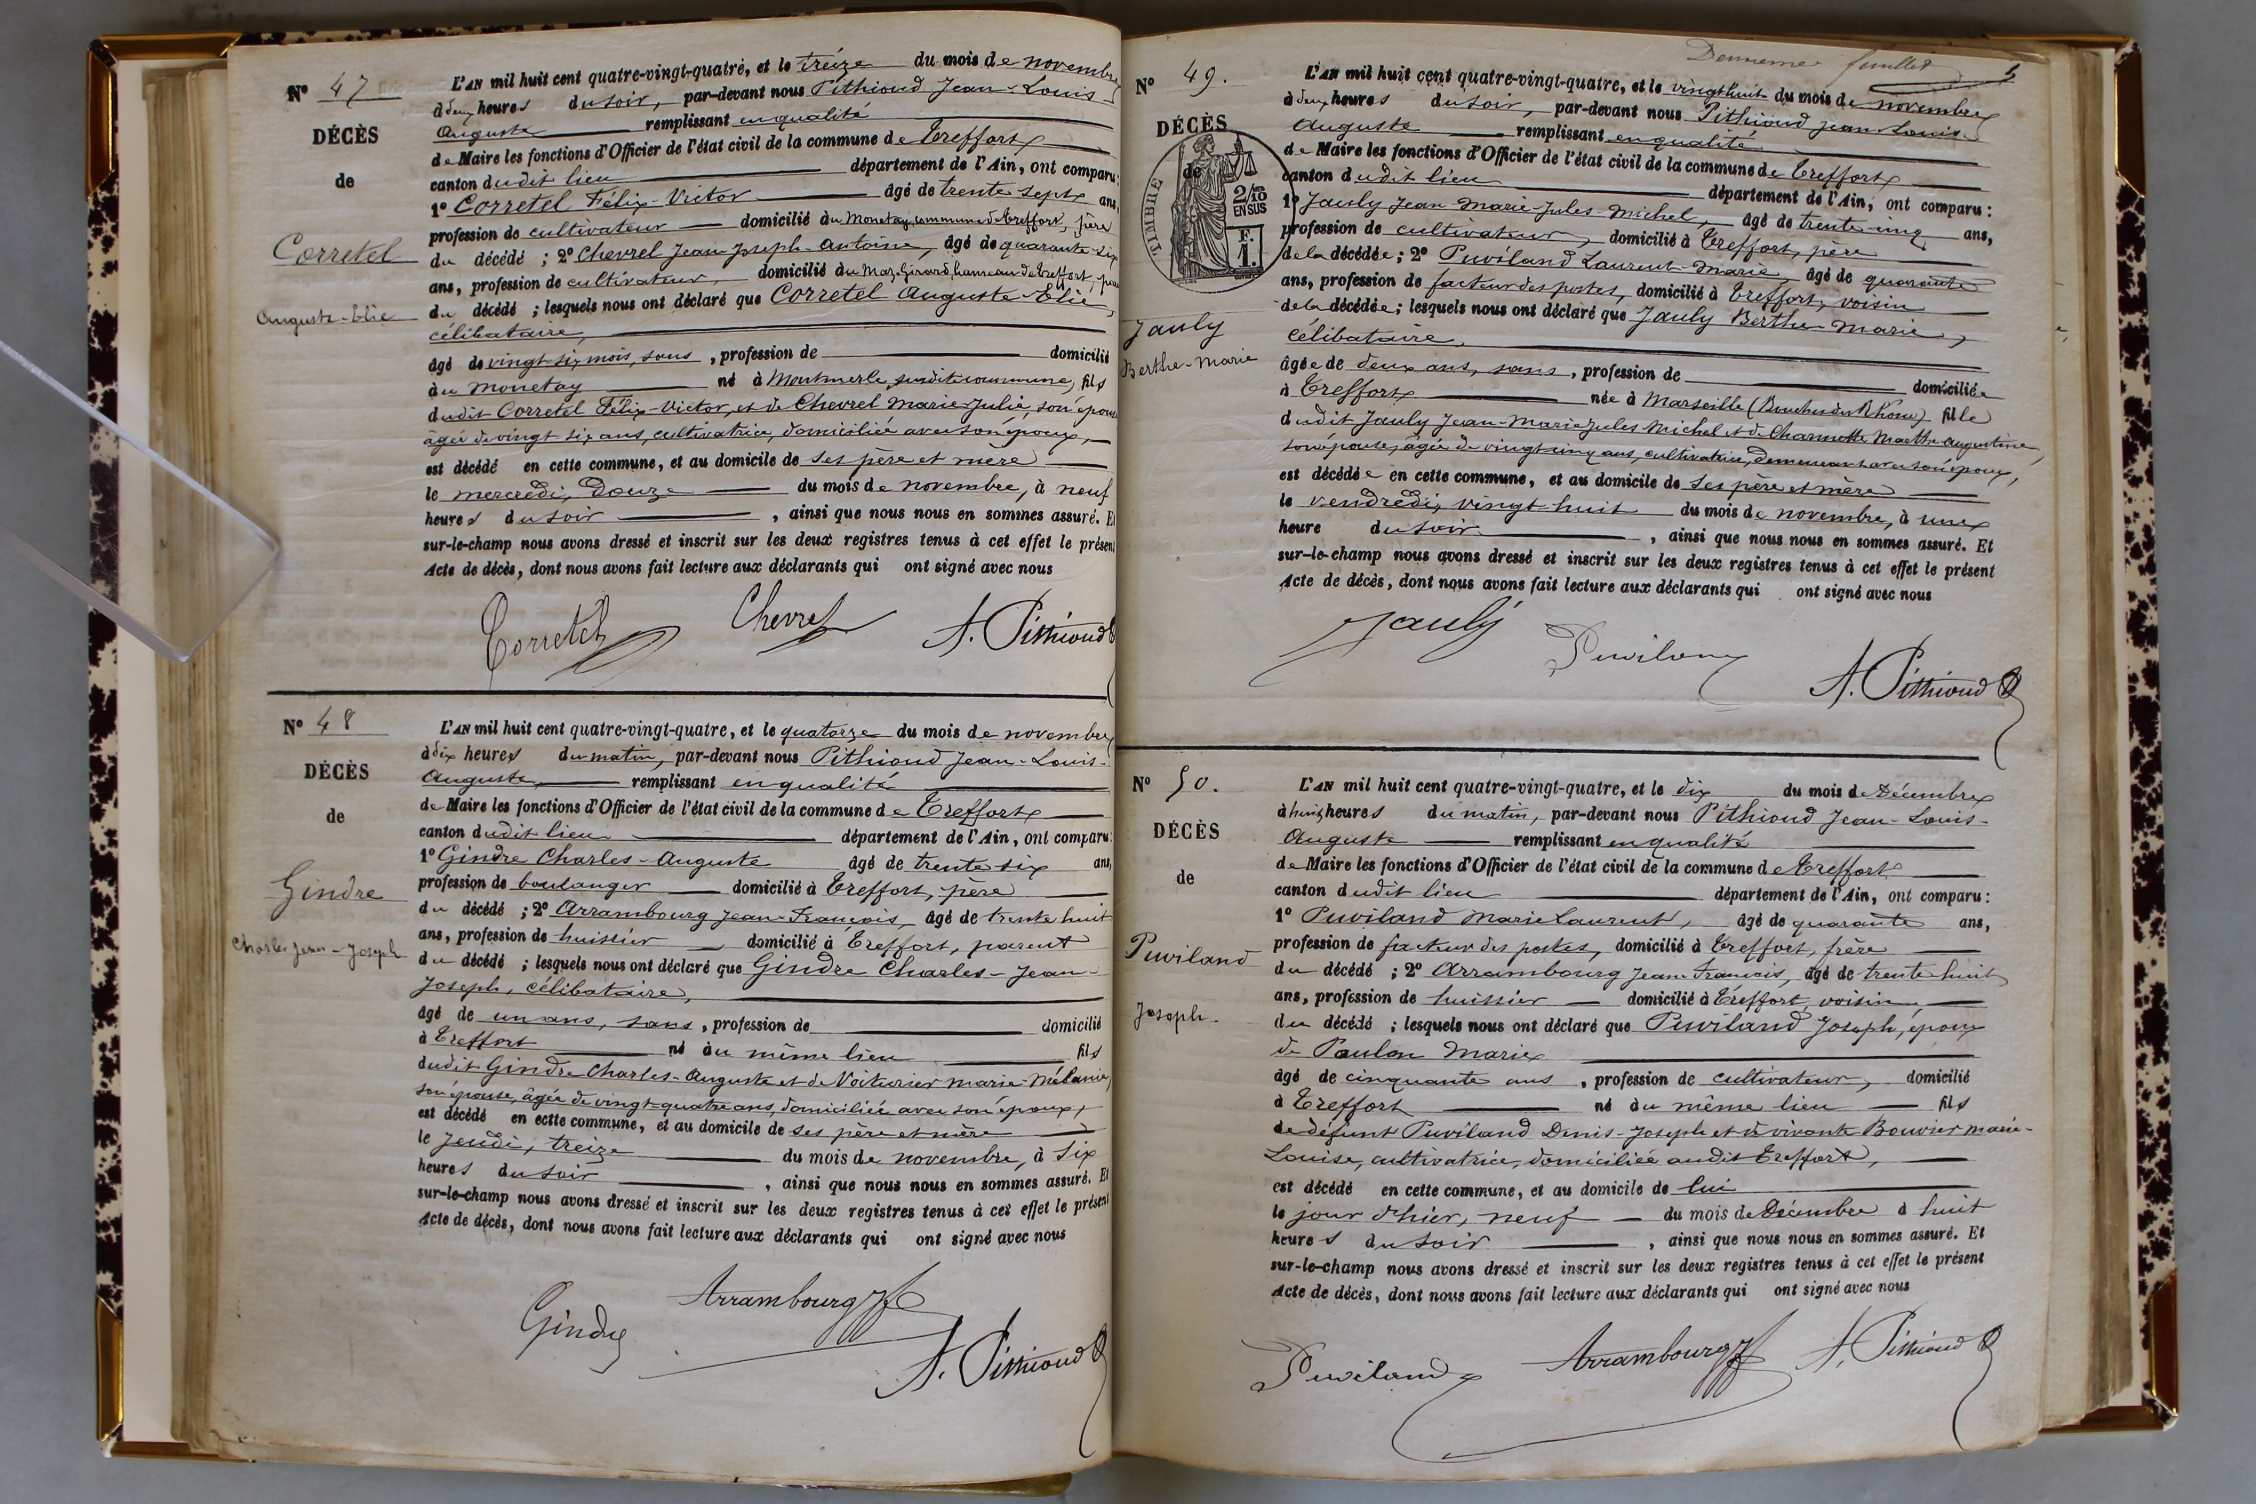 N° 47
DÉCÈS
de
Corretel
Auguste-Elie
L'AN mil huit cent quatre-vingt-quatre, et le treize du mois de novembre
à deux heures du soir, par-devant nous Pithioud Jean-Louis-
Auguste remplissant en qualité
de Maire les fonctions d'Officier de l'état civil de la commune de Treffort
canton dudit lieu département de l'Ain, ont comparu:
1° Corretel Félix-Victor âgé de trente sept ans,
profession de cultivateur domicilié au Monetay, commune de Treffort, père
du décédé ; 2° Chevrel Jean Joseph-Antoine, âgé de quarante-six
ans, profession de cultivateur, domicilié au Maz-Girard, hameau de Treffort,
du décédé ; lesquels nous ont déclaré que Corretel Auguste-Elie,
célibataire,
âgé de vingt-six mois, sans , profession de domicilié
au Monetay né à Montmerle, susdite commune, fils
dudit Corretel Félix-Victor, et de Chevrel Marie-Julie, son épouse
âgée de vingt six ans, cultivatrice, domiciliée avec son époux,
est décédé en cette commune, et au domicile de ses père et mère
le mercredi, douze du mois de novembre, à neuf
heures du soir , ainsi que nous nous en sommes assuré. Et
sur-le-champ nous avons dressé et inscrit sur les deux registres tenus à cet effet le présent
Acte de décès, dont nous avons fait lecture aux déclarants qui ont signé avec nous
Corretel Chevrel A. Pithioud
N° 48
DÉCÈS
de
Gindre
Charles Jean-Joseph
L'AN mil huit cent quatre-vingt-quatre, et le quatorze du mois de novembre
à dix heures du matin, par-devant nous Pithioud Jean-Louis-
Auguste, remplissant en qualité
de Maire les fonctions d'Officier de l'état civil de la commune de Treffort
canton dudit lieu département de l'Ain, ont comparu:
1° Gindre Charles-Auguste âgé de trente-six ans,
profession de boulanger domicilié à Treffort, père
du décédé ; 2° Arrambourg Jean-François, âgé de trente huit
ans, profession de huissier domicilié à Treffort, parent
du décédé ; lesquels nous ont déclaré que Gindre Charles-Jean-
Joseph, célibataire,
âgé de un ans, sans , profession de domicilié
à Treffort né au même lieu fils
dudit Gindre Charles-Auguste et de Voiturier Marie-Mélanie,
son épouse, âgée de vingt-quatre ans, domiciliée avec son époux,
est décédé en cette commune, et au domicile de ses père et mère
le Jeudi, treize du mois de novembre, à six
heures du soir , ainsi que nous nous en sommes assuré. Et
sur-le-champ nous avons dressé et inscrit sur les deux registres tenus à cet effet le présent
Acte de décès, dont nous avons fait lecture aux déclarants qui ont signé avec nous
Gindre Arrambourg A. Pithioud
feuillet 5
N° 49.
DÉCÈS
de
TIMBRE
2/10
EN SUS
F.
1.
Jauly
Berthe-Marie
L'AN mil huit cent quatre-vingt-quatre, et le vingt huit du mois de novembre
à deux heures du soir, par-devant nous Pithioud Jean-Louis-
Auguste remplissant en qualité
de Maire les fonctions d'Officier de l'état civil de la commune de Treffort
canton dudit lieu département de l'Ain, ont comparu:
1° Jauly Jean-Marie-Jules-Michel, âgé de trente-cinq ans,
profession de cultivateur, domicilié à Treffort, père
de la décédée; 2° Puviland Laurent-Marie, âgé de quarante
ans, profession de facteur des postes, domicilié à Treffort, voisin
de la décédée; lesquels nous ont déclaré que Jauly Berthe-Marie,
célibataire,
âgée de deux ans, sans , profession de domiciliée
à Treffort née à Marseille (Bouches du Rhône) fille
dudit Jauly Jean-Marie Jules Michel et de Charmette Marthe Augustine,
son épouse, âgée de vingt cinq ans, cultivatrice, demeurant avec son époux,
est décédée en cette commune, et au domicile de ses père et mère
le vendredi, vingt-huit du mois de novembre, à une
heure du soir , ainsi que nous nous en sommes assuré. Et
sur-le-champ nous avons dressé et inscrit sur les deux registres tenus à cet effet le présent
Acte de décès, dont nous avons fait lecture aux déclarants qui ont signé avec nous
Jauly Puviland A. Pithioud
N° 50.
DÉCÈS
de
Puviland
Joseph.
L'AN mil huit cent quatre-vingt-quatre, et le dix du mois de Décembre
à huit heures du matin, par-devant nous Pithioud Jean-Louis-
Auguste remplissant en qualité
de Maire les fonctions d'Officier de l'état civil de la commune de Treffort
canton dudit lieu département de l'Ain, ont comparu:
1° Puviland Marie Laurent, âgé de quarante ans,
profession de facteur des postes, domicilié à Treffort, frère
du décédé ; 2° Arrambourg Jean-François, âgé de trente huit
ans, profession de huissier domicilié à Treffort, voisin,
du décédé ; lesquels nous ont déclaré que Puviland Joseph, époux
de Paulon Marie
âgé de cinquante ans , profession de cultivateur, domicilié
à Treffort né au même lieu fils
de défunt Puviland Denis-Joseph et de vivante Bouvier Marie-
Louise, cultivatrice, domiciliée audit Treffort,
est décédé en cette commune, et au domicile de lui
le jour d'hier, neuf du mois de Décembre à huit
heures du soir , ainsi que nous nous en sommes assuré. Et
sur-le-champ nous avons dressé et inscrit sur les deux registres tenus à cet effet le présent
Acte de décès, dont nous avons fait lecture aux déclarants qui ont signé avec nous
Puviland Arrambourg A. Pithioud